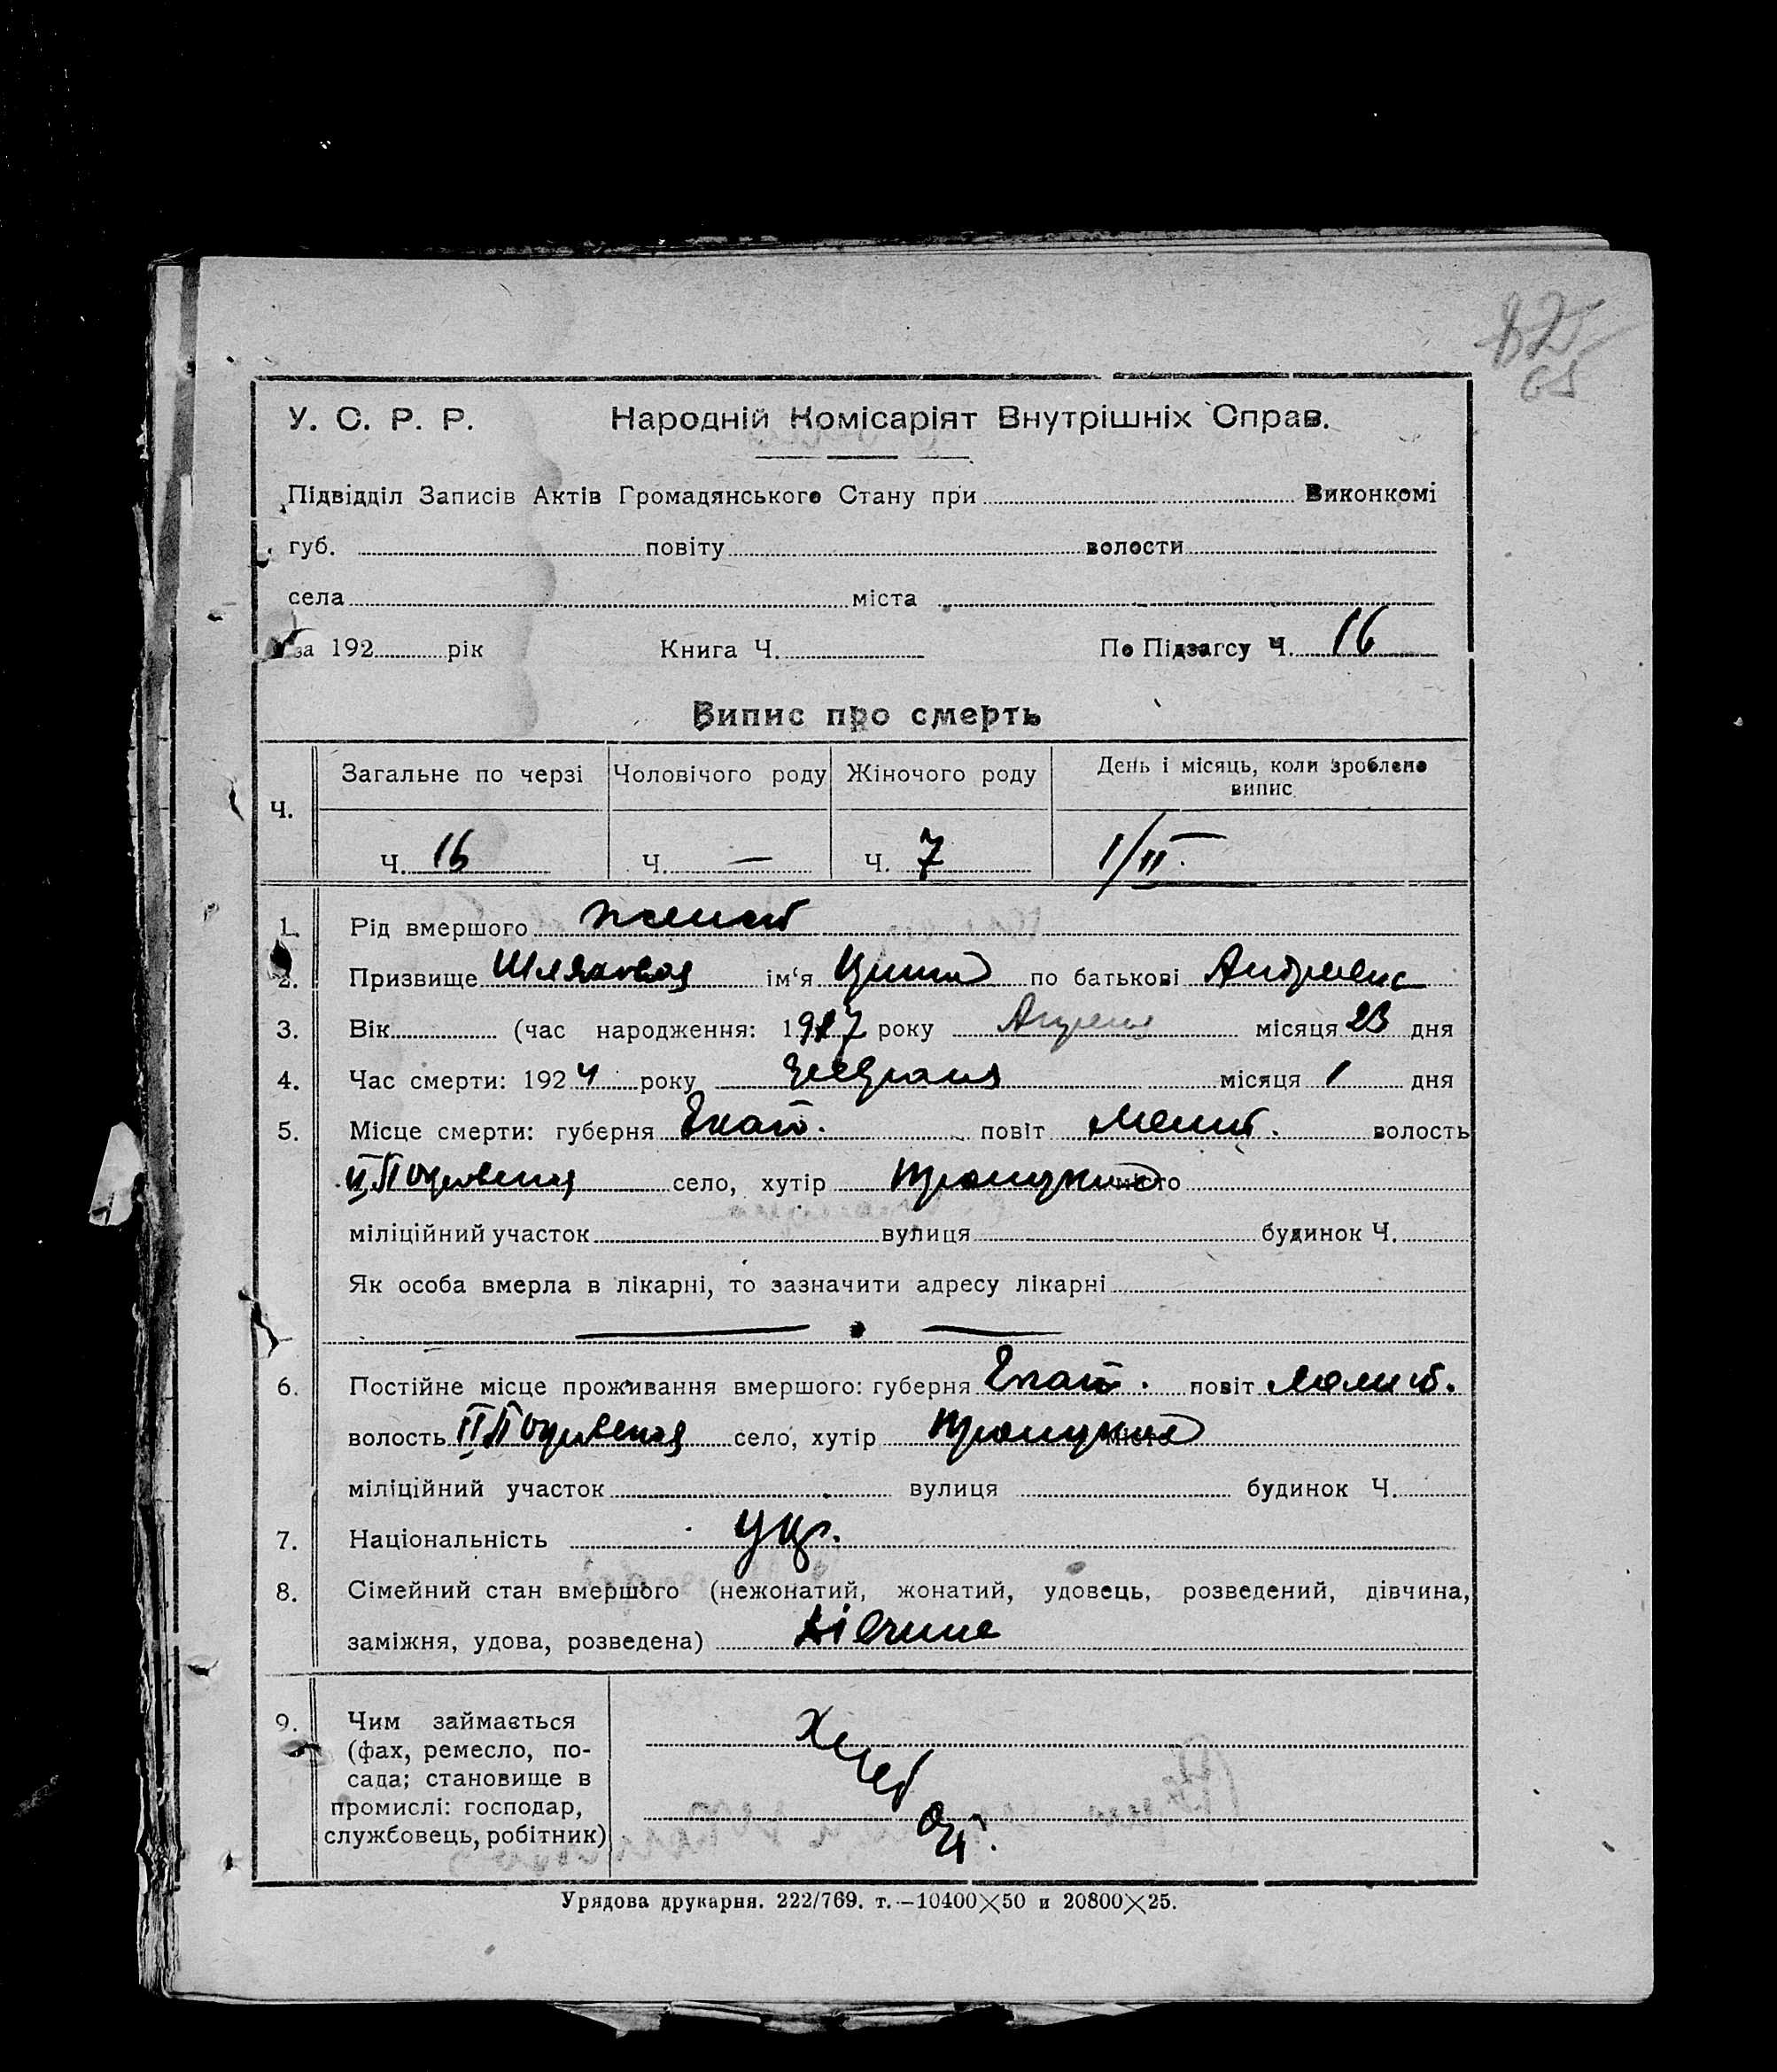 82
65
У. С. Р. Р. Народній Комісаріят Внутрішніх Справ.
Підвідділ Записів Актів Громадянського Стану при Виконкомі
губ. повіту волости
села міста
за 192 рік Книга Ч. По Підзагсу Ч. 16
Випис про смерть
Ч. Загальне по черзі Чоловічого роду Жіночого роду День і місяць, коли зроблено випис
Ч. 16 Ч. — Ч. 7 1/II.
1. Рід вмершого
2. Призвище Шляховая ім‘я по батькові
3. Вік (час народження: 1917 року Апреля місяця 23 дня
4. Час смерти: 1924 року Февраля місяця 1 дня
5. Місце смерти: губерня Екат. повіт Мелит. волость
II село, хутір місто
міліційний участок вулиця будинок Ч.
Як особа вмерла в лікарні, то зазначити адресу лікарні
6. Постійне місце проживання вмершого: губерня Екат. повіт Мелит.
волость II село, хутір місто
міліційний участок вулиця будинок Ч.
7. Національність Укр.
8. Сімейний стан вмершого (нежонатий, жонатий, удовець, розведений, дівчина,
заміжня, удова, розведена) дівчина
9. Чим займається
(фах, ремесло, по-
сада; становище в
промислі: господар,
службовець, робітник)
Хлеб
Урядова друкарня. 222/769. т.—10400×50 и 20800×25.